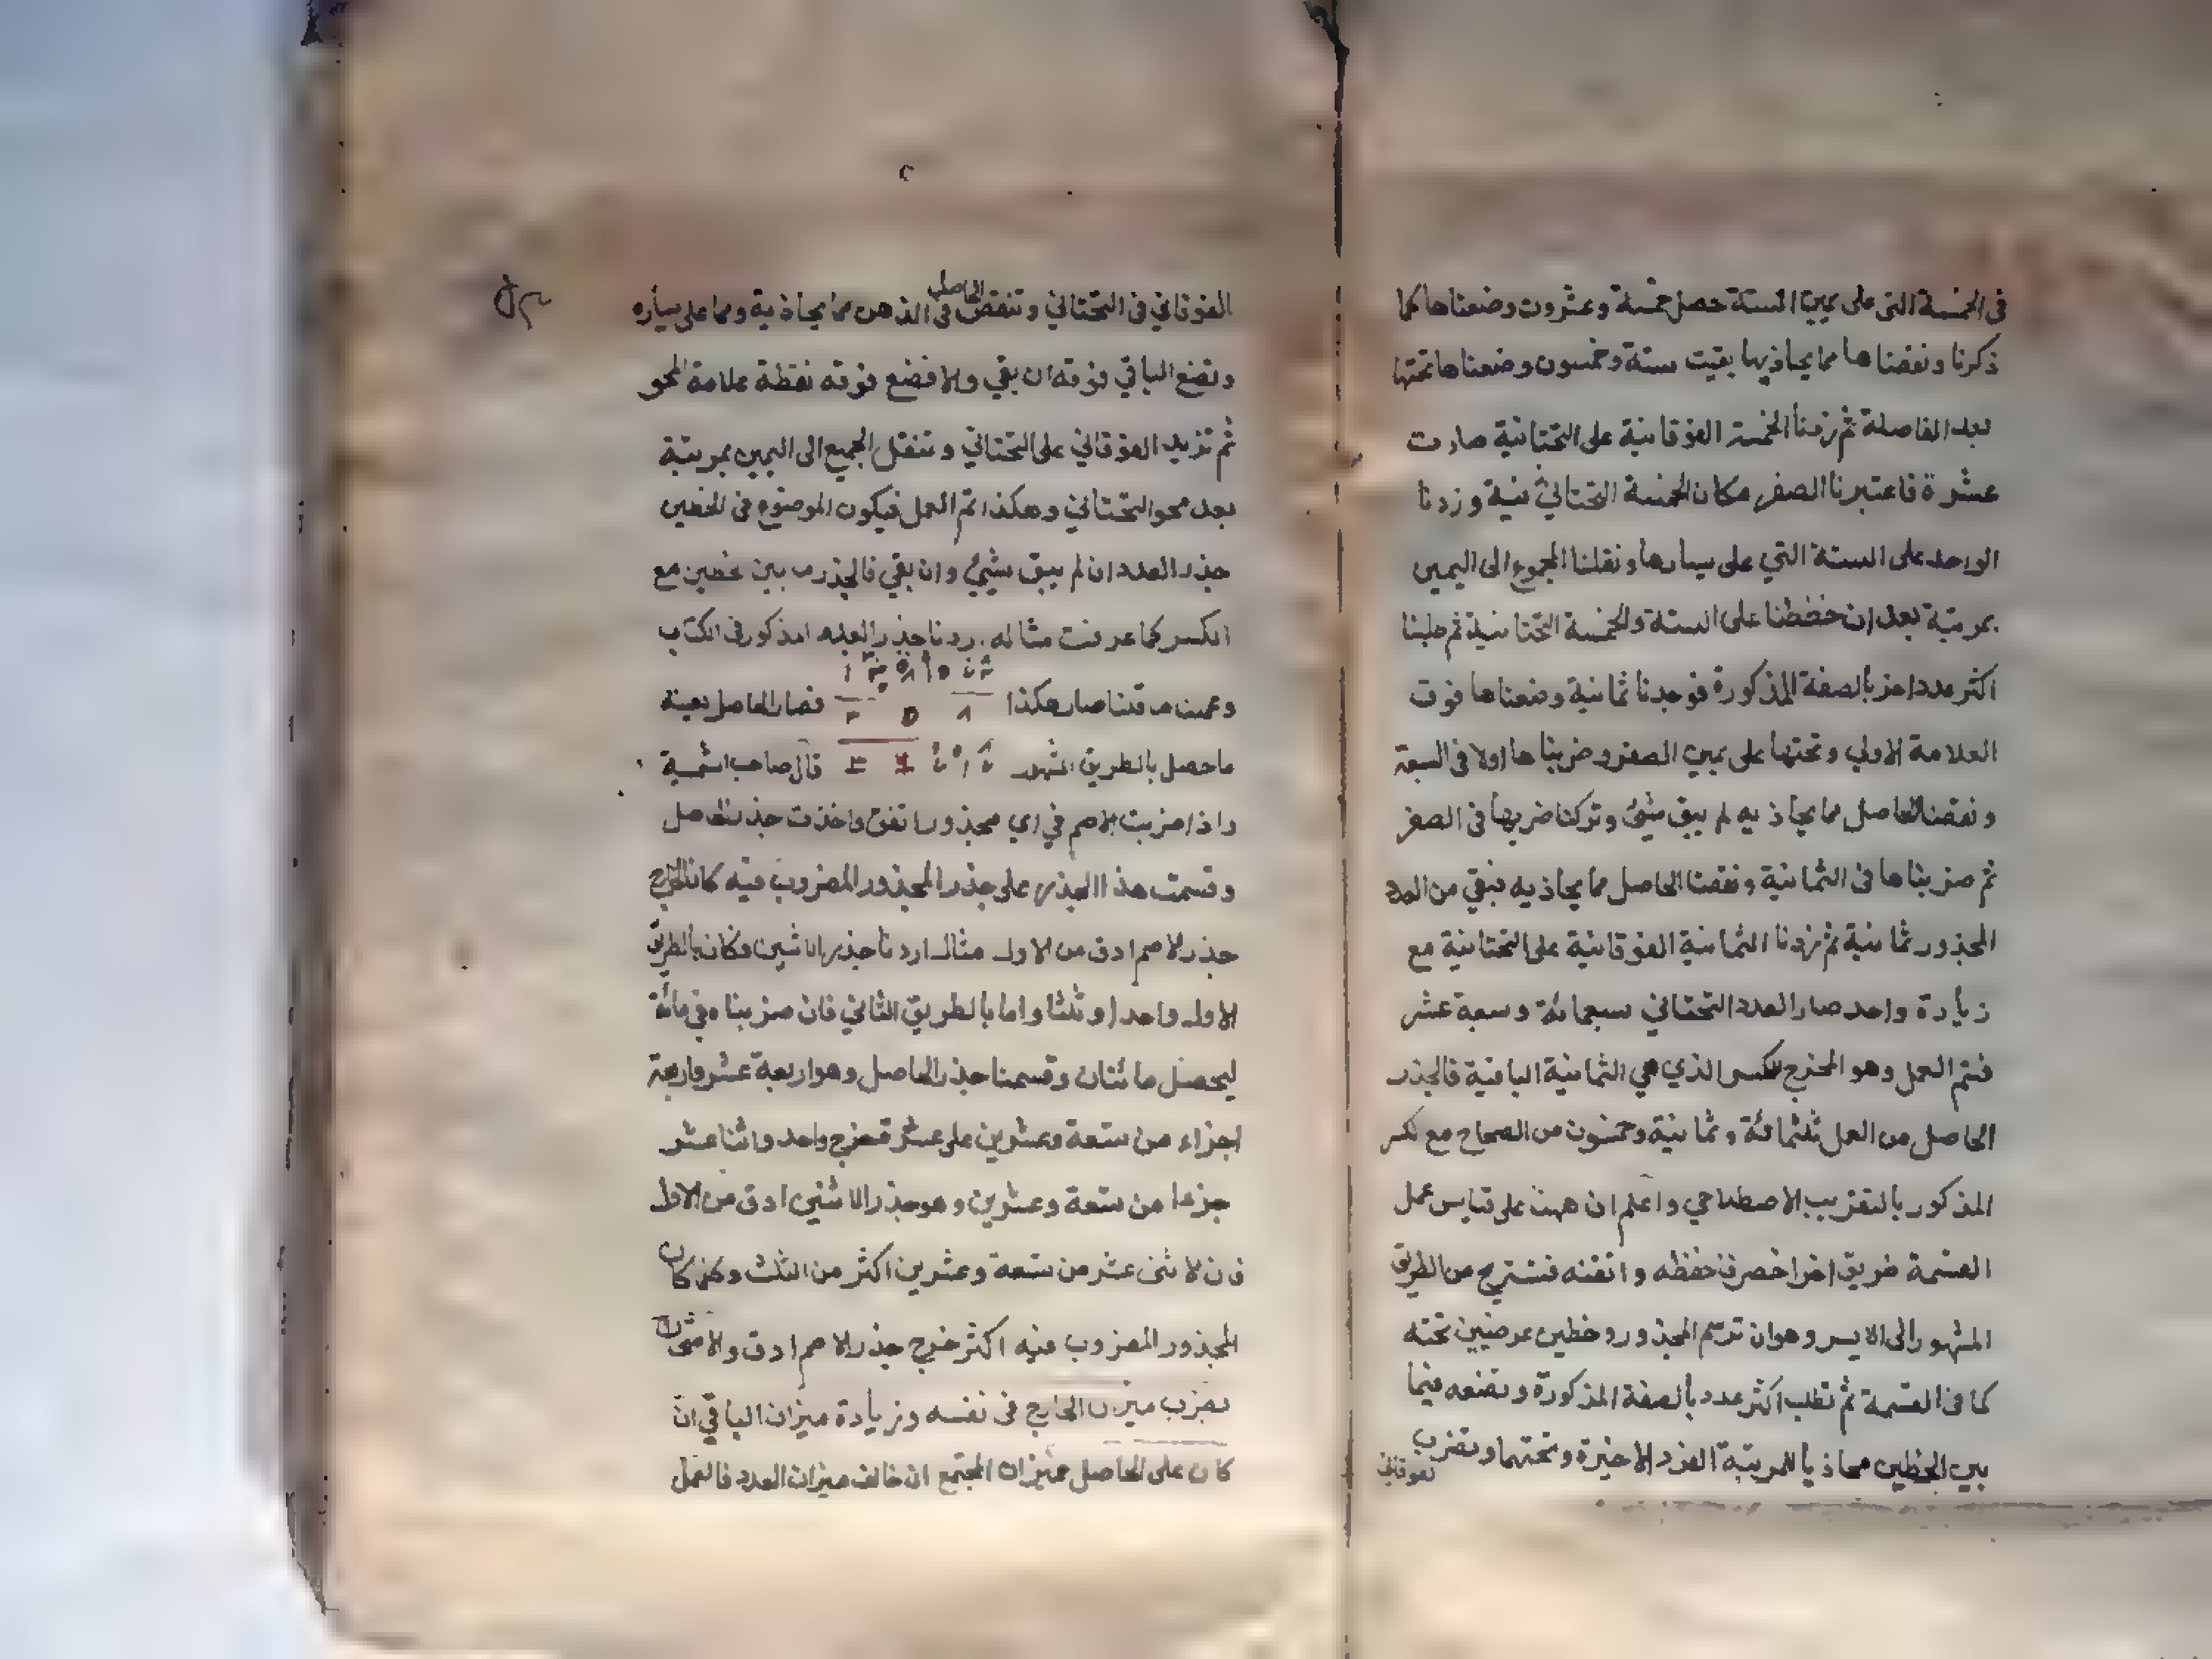 في الخمسة التي على يمين الستة حصل خمسة وعشرون وضعناها كما
ذكرنا ونقصناها مما يحاذيها بقيت ستة وخمسون وضعناها تحتها
بعد الفاصلة ثم زدنا الخمسة الفوقانية على التحتانية صارت
عشرة فاعتبرنا الصفر مكان الخمسة التحتانية وزدنا
الواحد على الستة التي على يسارها ونقلنا المجموع الى اليمين
بمرتبة بعد ان خططنا على الستة والخمسة التحتانية ثم طلبنا
اكثر عدد اخر بالصفة المذكورة فوجدنا ثمانية وضعناها فوق
العلامة الاولى وتحتها على يمين الصفر وضربناها اولا في السبعة
ونقصنا الحاصل مما يحاذيه لم يبق شيئ وتركنا ضربها في الصفر
ثم ضربناها في الثمانية ونقصنا الحاصل مما يحاذيه فبقي من العدد
المجذور ثمانية ثم زدنا الثمانية الفوقانية على التحتانية مع
زيادة واحد صار العدد التحتاني سبعمائة وسبعة عشر
فتم العمل وهو المخرج للكسر الذي هي الثمانية الباقية فالجذر
الحاصل من العمل ثلثمائة وثمانية وخمسون من الصحاح مع كسر
المذكور بالتقريب الاصطلاحي واعلم ان ههنا على قياس عمل
القسمة طريق اخر اخصر فاحفظه واتقنه فتستريح من الطريق
المشهور الى الايسر وهو ان ترسم المجذور وخطين عرضيين تحته
كما في القسمة ثم تطلب اكثر عدد بالصفة المذكورة وتضعه فيما
بين الخطين محاذيا للمرتبة الفرد الاخيرة وتحتهما وتضرب
الفوقاني
الفوقاني في التحتاني وتنقص الحاصل في الذهن مما يحاذيه ومما على يساره
وتضع الباقي فوقه ان بقي والا فضع فوقه نقطة علامة المحو
ثم تزيد الفوقاني على التحتاني وتنقل الجميع الى اليمين بمرتبة
بعد محو التحتاني وهكذا تم العمل فيكون الموضوع في الخطين
جذر العدد ان لم يبق شيئ وان بقي فالجذر ما بين خطين مع
الكسر كما عرفت مثاله اردنا جذر العدد المذكور في الكتاب
وعملنا ما قلنا صار هكذا ٣ ٥ ٨ فصار الحاصل بعينه
ما حصل بالطريق المشهور قال صاحب الشمسية
واذا ضربت الاصم في اي مجذور اتفق واخذت جذر الحاصل
وقسمت هذا الجذر على جذر المجذور المضروب فيه كان الخارج
جذر الاصم ادق من الاول مثاله اردنا جذر الاثنين وكان بالطريق
الاول واحدا وثلثا واما بالطريق الثاني فان ضربناه في مائة
ليحصل مائتان وقسمنا جذر الحاصل وهو اربعة عشر واربعة
اجزاء من تسعة وعشرين على عشرة خرج واحد واثنا عشر
جزءا من تسعة وعشرين وهو جذر الاثنين ادق من الاول
فان الاثنى عشر من تسعة وعشرين اكثر من الثلث وكلما كان
المجذور المضروب فيه اكثر خرج جذر الاصم ادق والامتحان
بضرب ميزان الخارج في نفسه وزيادة ميزان الباقي ان
كان على الحاصل فميزان المجتمع ان خالف ميزان العدد فالعمل